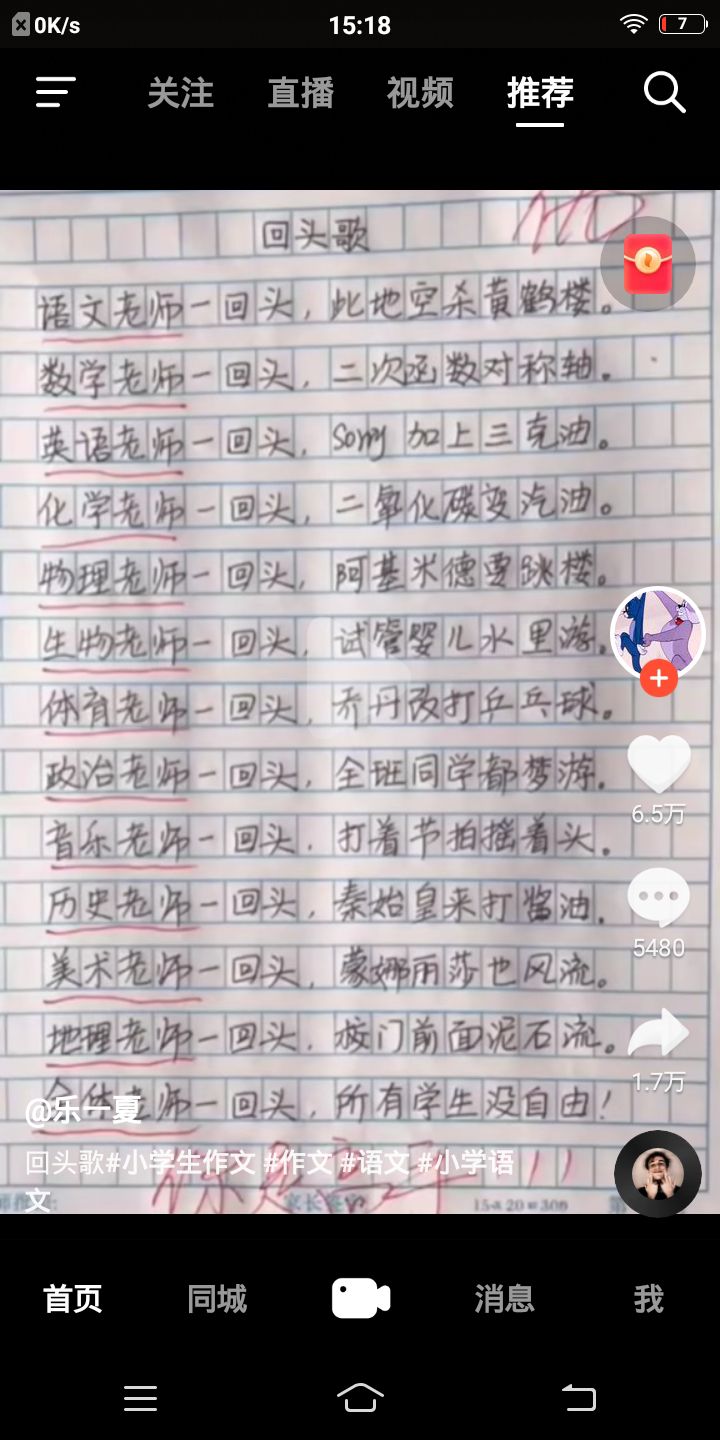 0K/s 15:18 7
关注 直播 视频 推荐
回头歌
语文老师一回头，此地空杀黄鹤楼。
数学老师一回头，二次函数对称轴。
英语老师一回头，Sorry 加上三克油。
化学老师一回头，二氧化碳变汽油。
物理老师一回头，阿基米德要跳楼。
生物老师一回头，试管婴儿水里游。
体育老师一回头，乔丹改打乒乓球。
政治老师一回头，全班同学都梦游。
音乐老师一回头，打着节拍摇着头。
历史老师一回头，秦始皇来打酱油。
美术老师一回头，蒙娜丽莎也风流。
地理老师一回头，校门前面泥石流。
全体老师一回头，所有学生没自由！
6.5万
5480
1.7万
@乐一夏
回头歌#小学生作文 #作文 #语文 #小学语
文
15×20=300
首页 同城 消息 我